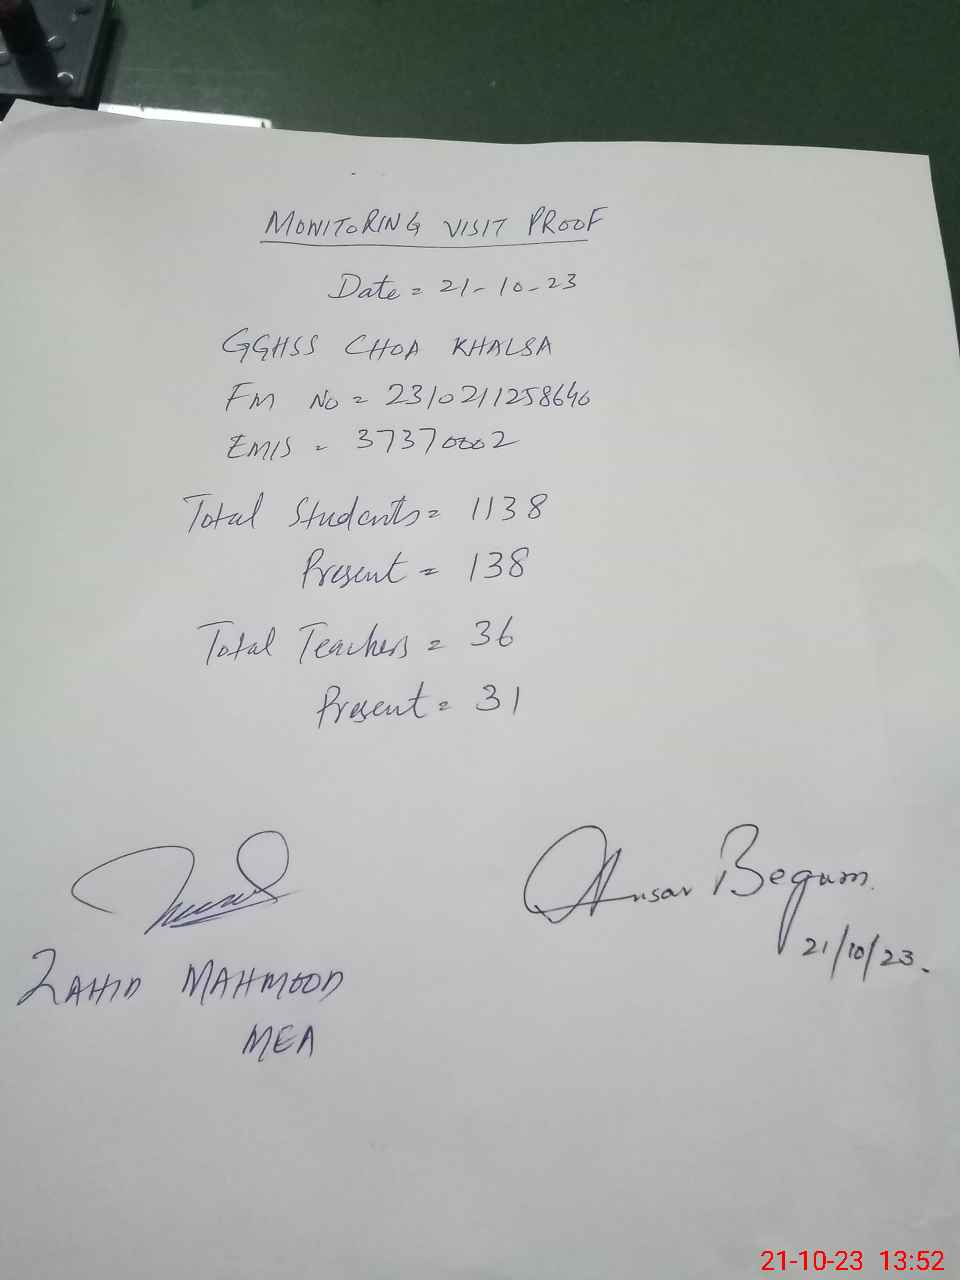 MONITORING VISIT PROOF
Date = 21-10-23
GGHSS CHOA KHALSA
FM No = 2310211258640
EMIS = 37370002
Total Students = 1138
Present = 138
Total Teachers = 36
Present = 31
Ansar Begum
21/10/23.
ZAHID MAHMOOD
MEA
21-10-23 13:52